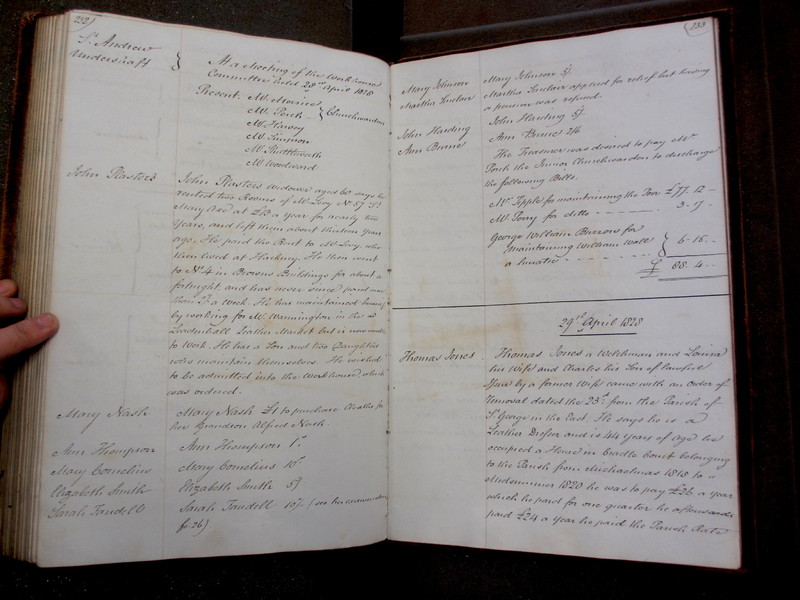 252
St. Andrew
Undershaft
At a Meeting of the Workhouse
Committee held 28th April 1828
Present. Mr. Morrice
Mr. Peck
Churchwardens
Mr. Harvey
Mr. Simpson
Mr. Shuttleworth
Mr. Woodward
John Plasters
John Plasters Widower aged 60 says he
rented two Rooms of Mr. Levy No. 57 St.
Mary Axe at £12 a Year for nearly two
Years, and left them about thirteen Years
ago. He paid the Rent to Mr. Levy, who
then lived at Hackney. He then went
to No. 4 in Browns Buildings for about a
fortnight, and has never since paid more
than a Week. He has maintained himself
by working for Mr. Warmington in the
Leadenhall Leather Market but is now unable
to Work. He has a Son and two Daughters
who maintain themselves. He wished
to be admitted into the Workhouse, which
was ordered.
Mary Nash
Mary Nash £1 to purchase Cloaths for
her Grandson Alfred Nash.
Ann Thompson
Ann Thompson 1/-
Mary Cornelius
Mary Cornelius 10/-
Elizabeth Smith
Elizabeth Smith 5/-
Sarah Fandell
Sarah Fandell 10/- (see her examination
fo. 26).
253
Mary Johnson
Mary Johnson 5/-
Martha Linton
Martha Linton applied for relief but having
a pension was refused.
John Harding
John Harding 5/-
Ann Burne
Ann Burne 2/6
The Treasurer was desired to pay Mr.
Peck the Junior Churchwarden to discharge
the following Bills.
Mr. Tipple for maintaining the Poor £77. 12 -
Mr. Perry for ditto - - - 3 - 17 -
George William Burrow for
maintaining William Wall
a lunatic - - - 6 - 15 - -
£ 88. 4 - -
29th April 1828
Thomas Jones.
Thomas Jones a Welchman and Louisa
his Wife and Charles his Son of twelve
Years by a former Wife came with an Order of
Removal dated the 23d. from the Parish of
St. George in the East. He says he is a
Leather Dresser and is 44 Years of Age he
occupied a House in Cradle Court belonging
to the Parish from Michaelmas 1818 to
Midsummer 1820 he was to pay £26 a year
which he paid for one quarter he afterwards
paid £24 a Year he paid the Parish Rates